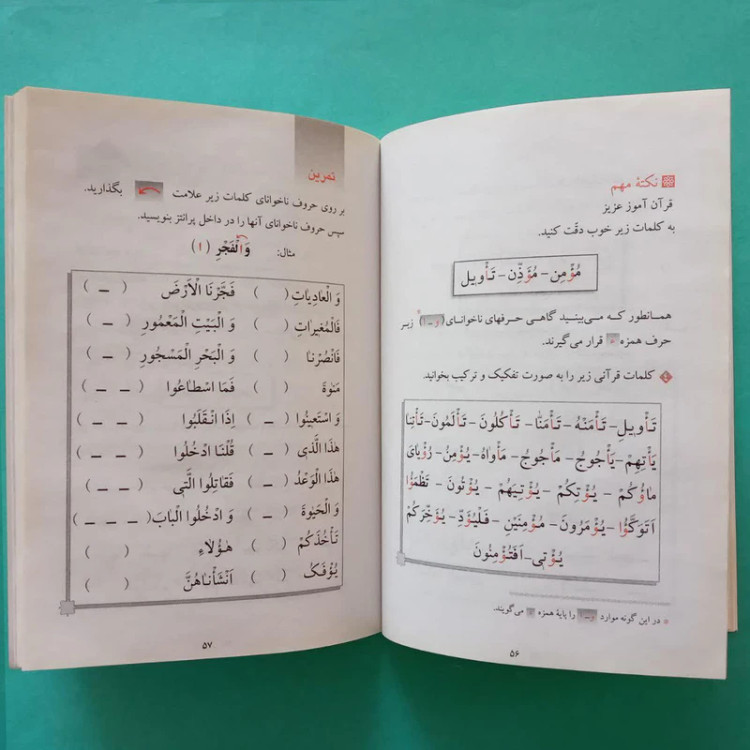 نکتهٔ مهم
قرآن آموز عزیز
به کلمات زیر خوب دقّت کنید.
مُؤْمِن - مُؤَذِّن - تَأْویل
همانطور که می‌بینید گاهی حرفهای ناخوانای (و - ا)* زیر
حرف همزه ء قرار می‌گیرند.
کلمات قرآنی زیر را به صورت تفکیک و ترکیب بخوانید.
تَأْوِیلِ - تَأْمَنْهُ - تَأْمَنَّا - تَأْکُلُونَ - تَأْلَمُونَ - تَأْتِنا
یَأْتِهِمْ - یَأْجُوجُ - مَأْجُوجُ - مَأْواهُ - یُؤْمِنُ - رُؤْیایَ
ماؤُکُمْ - یُؤْتِکُمْ - یُؤْتِیَهُمْ - یُؤْتُونَ - تَظْمَؤُا
اَتَوَکَّؤُا - یُؤْمَرُونَ - مُؤْمِنَیْنِ - فَلْیُؤَدِّ - یُؤَخِّرَکُمْ
یُؤْتِی - اَفَتُؤْمِنُونَ
* در این گونه موارد (و - ا) را پایهٔ همزه ء می‌گویند.
۵۶
تمرین
بر روی حروف ناخوانای کلمات زیر علامت بگذارید.
سپس حروف ناخوانای آنها را در داخل پرانتز بنویسید.
مثال: وَالْفَجْرِ (ا)
وَ الْعادِیاتِ ( ) فَجَّرْنَا الْاَرْضَ ( ـ )
فَالْمُغیراتِ ( ) وَ الْبَیْتِ الْمَعْمُورِ ( ـ )
فَانْصُرْنا ( ) وَ الْبَحْرِ الْمَسْجُورِ ( ـ )
مَنوةَ ( ) فَمَا اسْطاعُوا ( ـ )
وَ اسْتَعینُوا ( ـ ) اِذَا انْقَلَبُوا ( ـ )
هٰذَا الَّذی ( ـ ) قُلْنَا ادْخُلُوا ( ـ )
هٰذَا الْوَعْدُ ( ـ ) فَقاتِلُوا الَّتِی ( ـ )
وَ الْحَیٰوةَ ( ـ ) وَ ادْخُلُوا الْبابَ ( ـ ـ ـ )
تَأْخُذَکُمْ ( ) هٰؤُلاءِ ( )
یُؤْفَکُ ( ) اَنْشَأْناهُنَّ ( )
۵۷